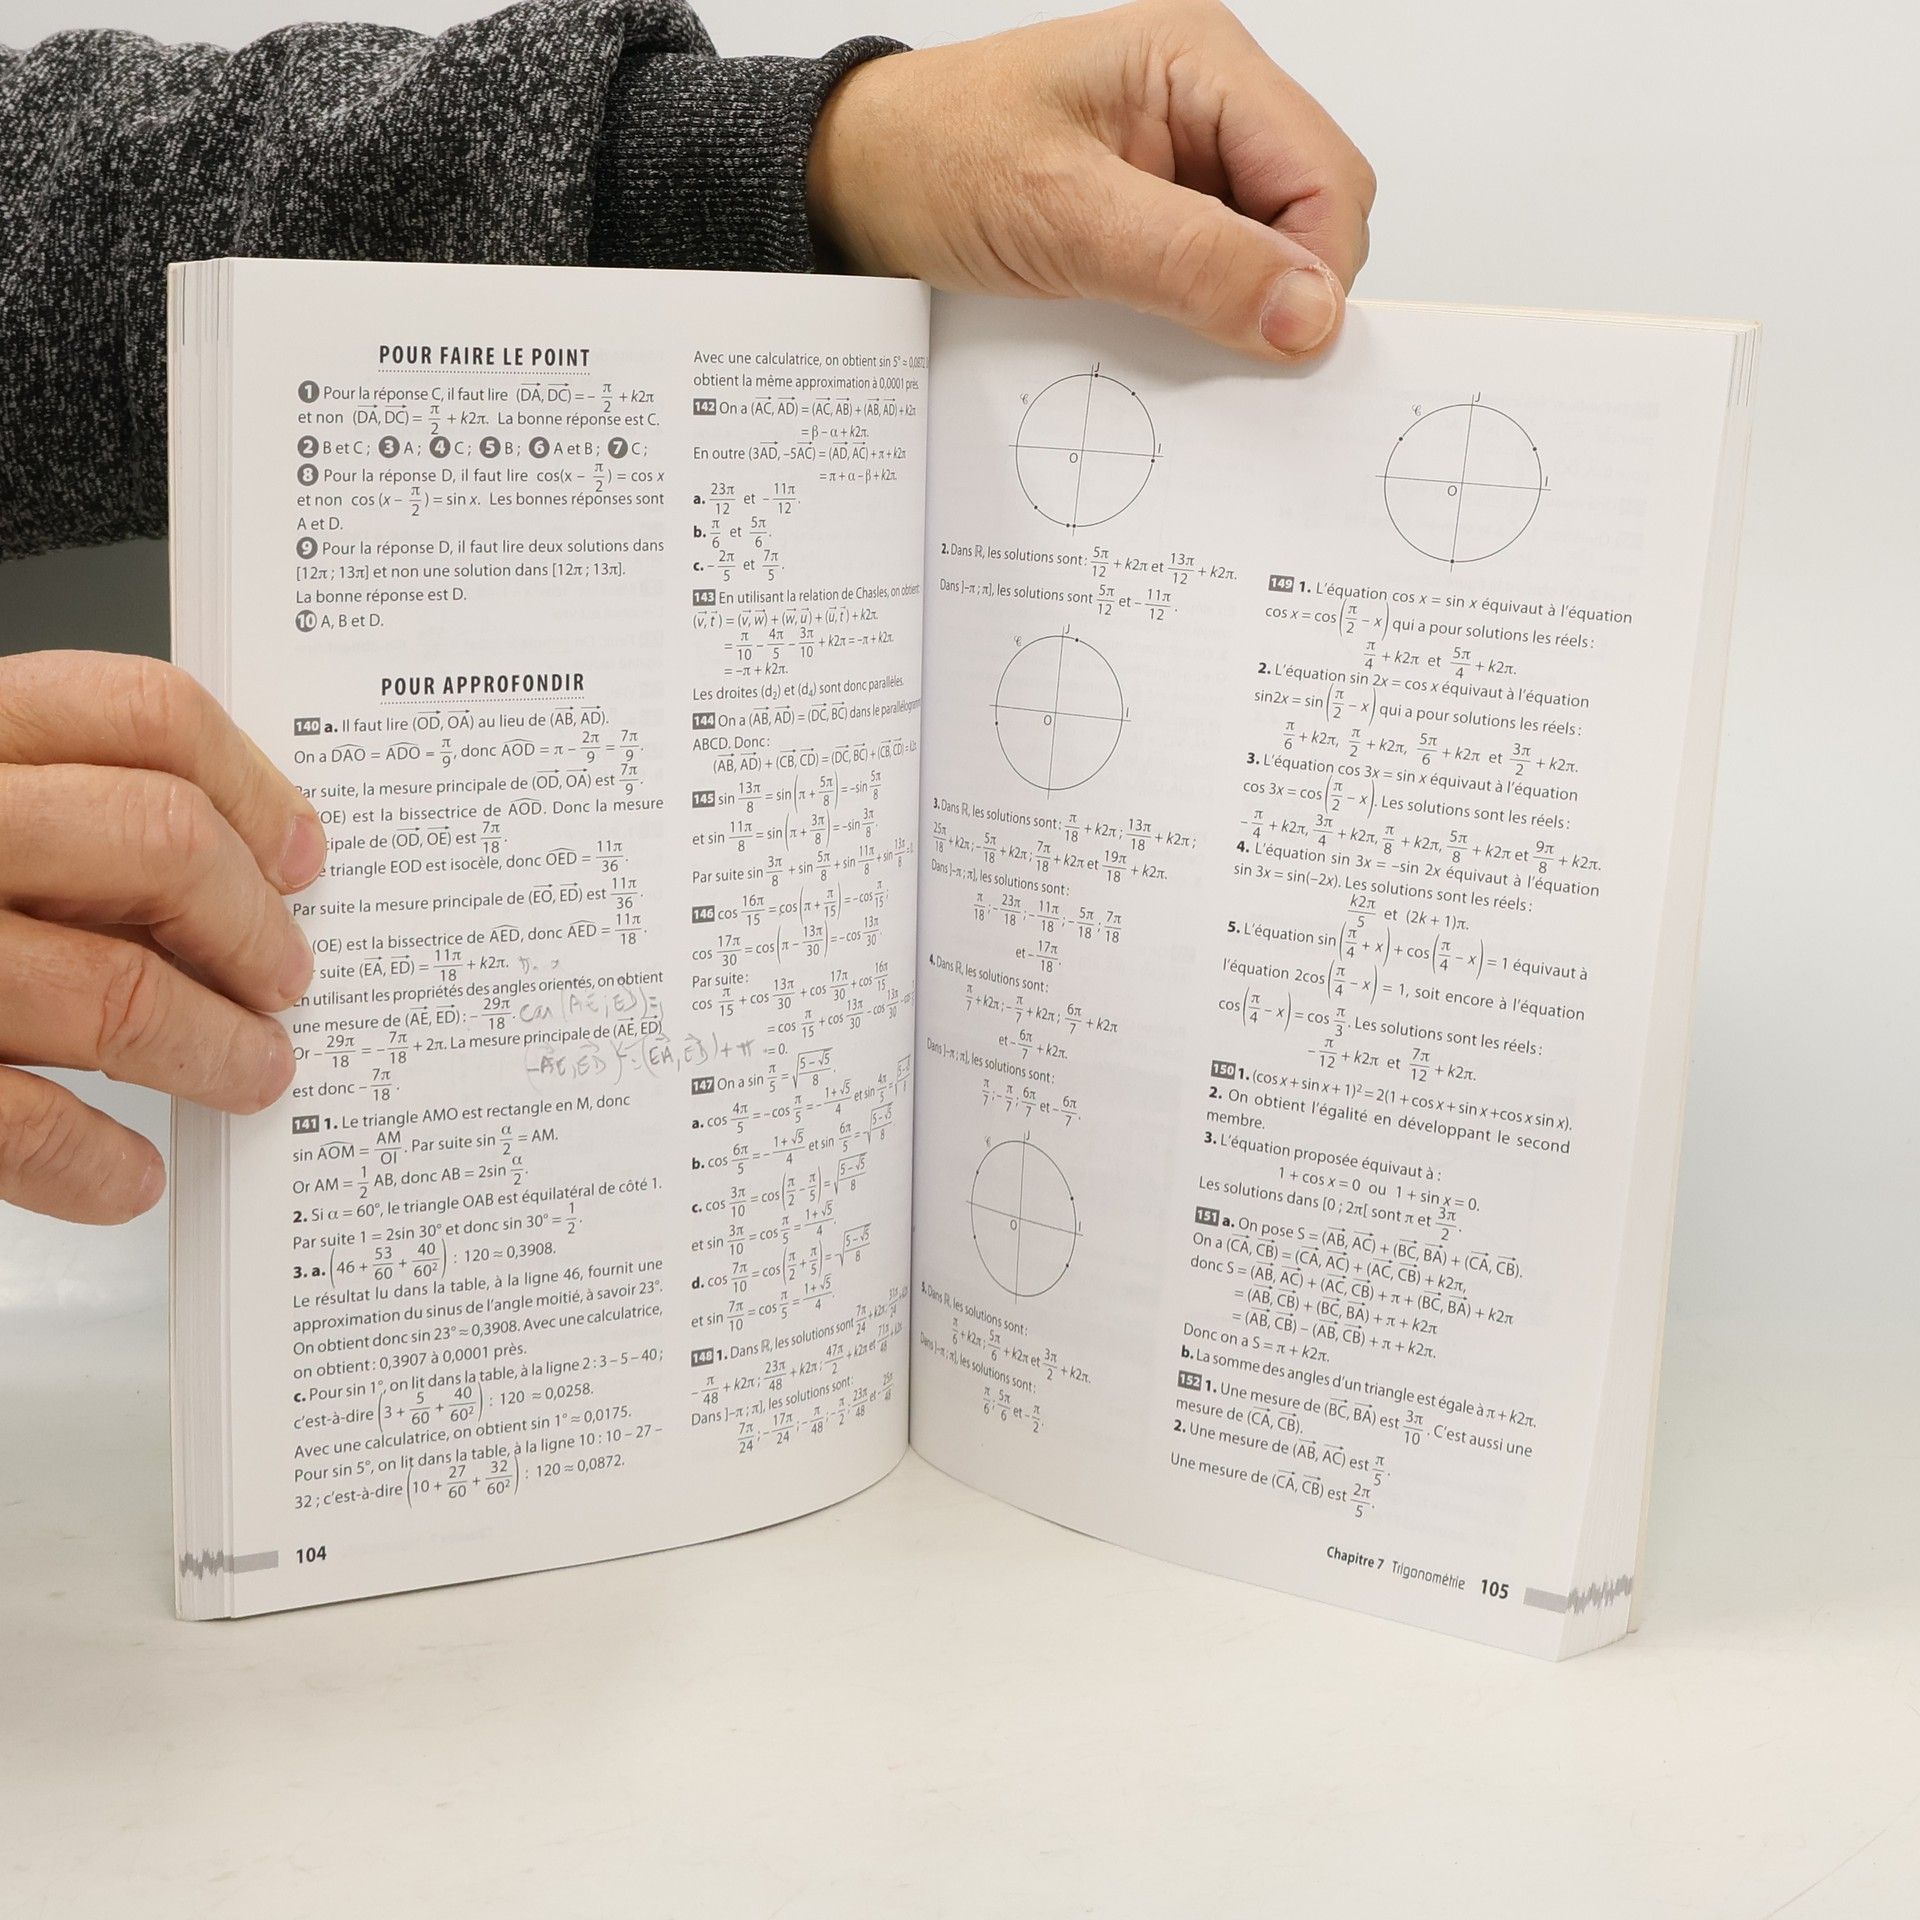 POUR FAIRE LE POINT
1 Pour la réponse C, il faut lire (DA, DC) = – π/2 + k2π
et non (DA, DC) = π/2 + k2π. La bonne réponse est C.
2 B et C ; 3 A ; 4 C ; 5 B ; 6 A et B ; 7 C ;
8 Pour la réponse D, il faut lire cos(x – π/2) = cos x
et non cos (x – π/2) = sin x. Les bonnes réponses sont
A et D.
9 Pour la réponse D, il faut lire deux solutions dans
[12π ; 13π] et non une solution dans [12π ; 13π].
La bonne réponse est D.
10 A, B et D.
POUR APPROFONDIR
140 a. Il faut lire (OD, OA) au lieu de (AB, AD).
On a DAO = ADO = π/9, donc AOD = π – 2π/9 = 7π/9.
Par suite, la mesure principale de (OD, OA) est 7π/9.
(OE) est la bissectrice de AOD. Donc la mesure
de (OD, OE) est 7π/18.
triangle EOD est isocèle, donc OED = 11π/36.
Par suite la mesure principale de (EO, ED) est 11π/36.
(OE) est la bissectrice de AED, donc AED = 11π/18.
suite (EA, ED) = 11π/18 + k2π.
En utilisant les propriétés des angles orientés, on obtient
une mesure de (AE, ED) : – 29π/18. car (AE; ED) =
Or – 29π/18 = – 7π/18 + 2π. La mesure principale de (AE, ED)
(-AE, ED) = (EA, ED) + π
est donc – 7π/18.
141 1. Le triangle AMO est rectangle en M, donc
sin AOM = AM/OI. Par suite sin α/2 = AM.
Or AM = 1/2 AB, donc AB = 2sin α/2.
2. Si α = 60°, le triangle OAB est équilatéral de côté 1.
Par suite 1 = 2sin 30° et donc sin 30° = 1/2.
3. a. (46 + 53/60 + 40/60²) : 120 ≈ 0,3908.
Le résultat lu dans la table, à la ligne 46, fournit une
approximation du sinus de l'angle moitié, à savoir 23°.
On obtient donc sin 23° ≈ 0,3908. Avec une calculatrice,
on obtient : 0,3907 à 0,0001 près.
c. Pour sin 1°, on lit dans la table, à la ligne 2 : 3 – 5 – 40 ;
c'est-à-dire (3 + 5/60 + 40/60²) : 120 ≈ 0,0258.
Avec une calculatrice, on obtient sin 1° ≈ 0,0175.
Pour sin 5°, on lit dans la table, à la ligne 10 : 10 – 27 –
32 ; c'est-à-dire (10 + 27/60 + 32/60²) : 120 ≈ 0,0872.
104
Avec une calculatrice, on obtient sin 5° ≈
obtient la même approximation à 0,0001 près.
142 On a (AC, AD) = (AC, AB) + (AB, AD) + k2π
= β – α + k2π.
En outre (3AD, –5AC) = (AD, AC) + π + k2π
= π + α – β + k2π.
a. 23π/12 et – 11π/12.
b. π/6 et 5π/6.
c. – 2π/5 et 7π/5.
143 En utilisant la relation de Chasles, on obtient
(v, t) = (v, w) + (w, u) + (u, t) + k2π.
= π/10 – 4π/5 – 3π/10 + k2π = –π + k2π.
= –π + k2π.
Les droites (d2) et (d4) sont donc parallèles.
144 On a (AB, AD) = (DC, BC) dans le parallélogramme
ABCD. Donc :
(AB, AD) + (CB, CD) = (DC, BC) + (CB, CD) = k2π
145 sin 13π/8 = sin(π + 5π/8) = –sin 5π/8
et sin 11π/8 = sin(π + 3π/8) = –sin 3π/8.
Par suite sin 3π/8 + sin 5π/8 + sin 11π/8 + sin 13π/8 = 0.
146 cos 16π/15 = cos(π + π/15) = –cos π/15 ;
cos 17π/30 = cos(π – 13π/30) = –cos 13π/30.
Par suite :
cos π/15 + cos 13π/30 + cos 17π/30 + cos 16π/15
= cos π/15 + cos 13π/30 – cos 13π/30 – cos
= 0.
147 On a sin π/5 = √(5 – √5)/8.
a. cos 4π/5 = –cos π/5 = – 1 + √5/4 et sin 4π/5 = √(5 – √5)/8
b. cos 6π/5 = – 1 + √5/4 et sin 6π/5 = – √(5 – √5)/8
c. cos 3π/10 = cos(π/2 – π/5) = √(5 – √5)/8
et sin 3π/10 = cos π/5 = 1 + √5/4.
d. cos 7π/10 = cos(π/2 + π/5) = – √(5 – √5)/8
et sin 7π/10 = cos π/5 = 1 + √5/4.
148 1. Dans ℝ, les solutions sont 7π/24 + k2π ;
– π/48 + k2π ; 23π/48 + k2π ; 47π/2 + k2π et
Dans ]–π ; π], les solutions sont :
7π/24 ; – 17π/24 ; – π/48 ; – π/2 ; 23π/48 et – 25π/48
𝒞 J I O
2. Dans ℝ, les solutions sont : 5π/12 + k2π et 13π/12 + k2π.
Dans ]–π ; π], les solutions sont 5π/12 et – 11π/12.
𝒞 J I O
3. Dans ℝ, les solutions sont : π/18 + k2π ; 13π/18 + k2π ;
25π/18 + k2π ; – 5π/18 + k2π ; 7π/18 + k2π et 19π/18 + k2π.
Dans ]–π ; π], les solutions sont :
π/18 ; – 23π/18 ; – 11π/18 ; – 5π/18 ; 7π/18
et – 17π/18.
4. Dans ℝ, les solutions sont :
π/7 + k2π ; – π/7 + k2π ; 6π/7 + k2π
et – 6π/7 + k2π.
Dans ]–π ; π], les solutions sont :
π/7 ; – π/7 ; 6π/7 et – 6π/7.
𝒞 J I O
5. Dans ℝ, les solutions sont :
π/6 + k2π ; 5π/6 + k2π et 3π/2 + k2π.
Dans ]–π ; π], les solutions sont :
π/6 ; 5π/6 et – π/2.
𝒞 J I O
149 1. L'équation cos x = sin x équivaut à l'équation
cos x = cos(π/2 – x) qui a pour solutions les réels :
π/4 + k2π et 5π/4 + k2π.
2. L'équation sin 2x = cos x équivaut à l'équation
sin2x = sin(π/2 – x) qui a pour solutions les réels :
π/6 + k2π, π/2 + k2π, 5π/6 + k2π et 3π/2 + k2π.
3. L'équation cos 3x = sin x équivaut à l'équation
cos 3x = cos(π/2 – x). Les solutions sont les réels :
– π/4 + k2π, 3π/4 + k2π, π/8 + k2π, 5π/8 + k2π et 9π/8 + k2π.
4. L'équation sin 3x = –sin 2x équivaut à l'équation
sin 3x = sin(–2x). Les solutions sont les réels :
k2π/5 et (2k + 1)π.
5. L'équation sin(π/4 + x) + cos(π/4 – x) = 1 équivaut à
l'équation 2cos(π/4 – x) = 1, soit encore à l'équation
cos(π/4 – x) = cos π/3. Les solutions sont les réels :
– π/12 + k2π et 7π/12 + k2π.
150 1. (cos x + sin x + 1)² = 2(1 + cos x + sin x + cos x sin x).
2. On obtient l'égalité en développant le second
membre.
3. L'équation proposée équivaut à :
1 + cos x = 0 ou 1 + sin x = 0.
Les solutions dans [0 ; 2π[ sont π et 3π/2.
151 a. On pose S = (AB, AC) + (BC, BA) + (CA, CB).
On a (CA, CB) = (CA, AC) + (AC, CB) + k2π,
donc S = (AB, AC) + (AC, CB) + π + (BC, BA) + k2π
= (AB, CB) + (BC, BA) + π + k2π
= (AB, CB) – (AB, CB) + π + k2π.
Donc on a S = π + k2π.
b. La somme des angles d'un triangle est égale à π + k2π.
152 1. Une mesure de (BC, BA) est 3π/10. C'est aussi une
mesure de (CA, CB).
2. Une mesure de (AB, AC) est π/5.
Une mesure de (CA, CB) est 2π/5.
Chapitre 7 Trigonométrie 105